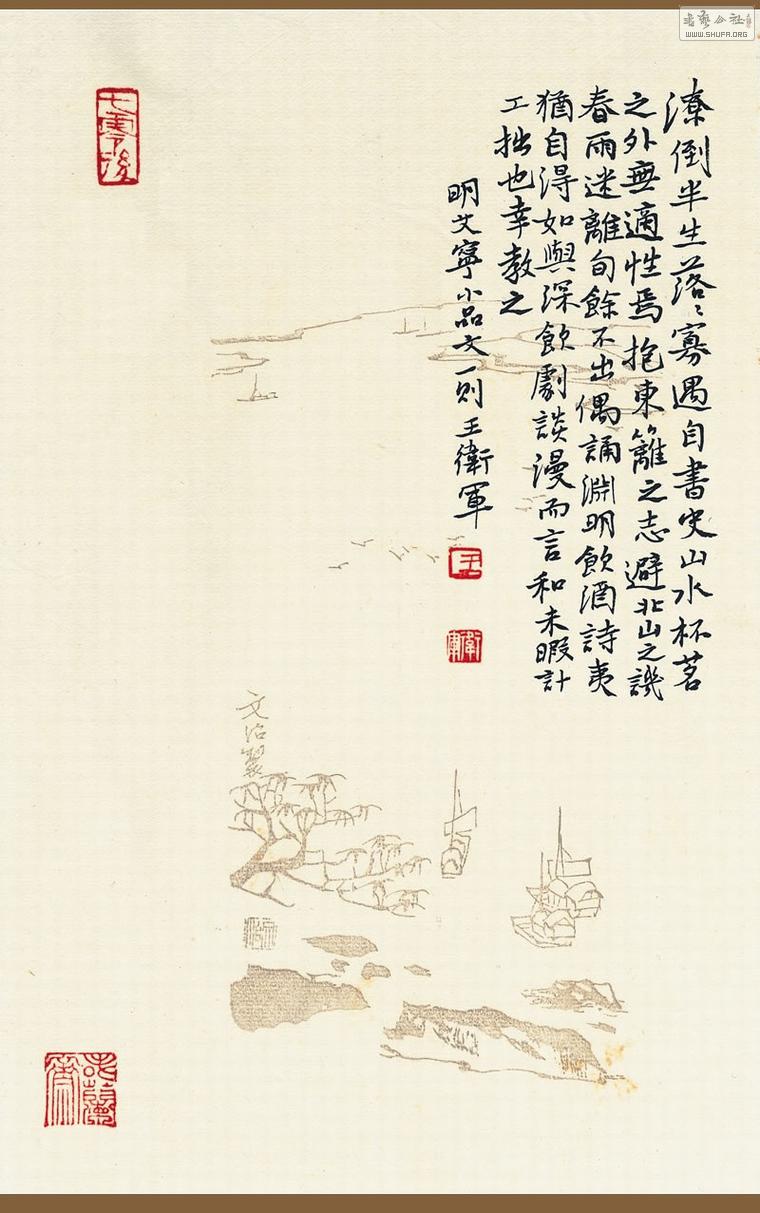 潦倒半生落〻寡遇自書史山水杯茗
之外無適性焉抱東籬之志避北山之譏
春雨迷離旬餘不出偶誦淵明飲酒詩夷
猶自得如與深飲劇談漫而言和未暇計
工拙也幸教之
明艾寧小品文一則王衛軍
王
衛軍
文治製
書藝公社
WWW.SHUFA.ORG